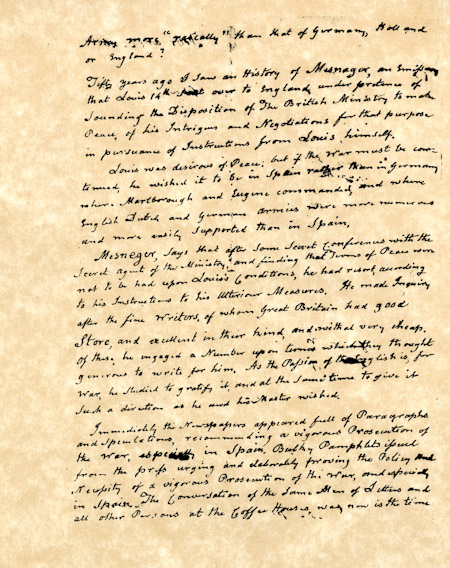 Army more "rascally" than that of Germany, Holland
or England?
Fifty years ago I saw an History of Mesnager, an Emissary
that Louis 14th sent over to England, under pretence of
sounding the Disposition of The British Ministry to make
Peace, of his Intrigues and Negotiations for that purpose
in pursuance of Instructions from Louis himself.
Louis was desirous of Peace; but if the War must be con-
tinued, he wished it to be in Spain rather than in Germany
where Marlborough and Eugene commanded, and where
English Dutch and German armies were more numerous
and more easily supported than in Spain,
Mesnager, says that after some Secret Conferences with the
Secret agent of the Ministry, and finding that Terms of Peace were
not to be had upon Louis's Conditions, he had resort, according
to his Instructions to his Ulteriour Measures. He made Inquiry
after the fine Writers, of whom Great Britain had good
Store, and excellent in their kind, and withal very cheap.
Of these he engaged a Number upon terms which they thought
generous to write for him. As the Passion of the English is, for
War, he studied to gratify it, and at the same time to give it
such a direction as he and his Master wished.
Immediately the Newspapers appeared full of Paragraphs
and Speculations, recommending a vigorous Prosecution of
the War, in Spain. Bushy Pamphlets issued
from the press urging and elaborately proving the Policy and
Necessity of a vigorous Prosecution of the War, and especially
in Spain. The Conversation of the same Men of Letters and
all other Persons at the Coffee Houses, was, now is the time